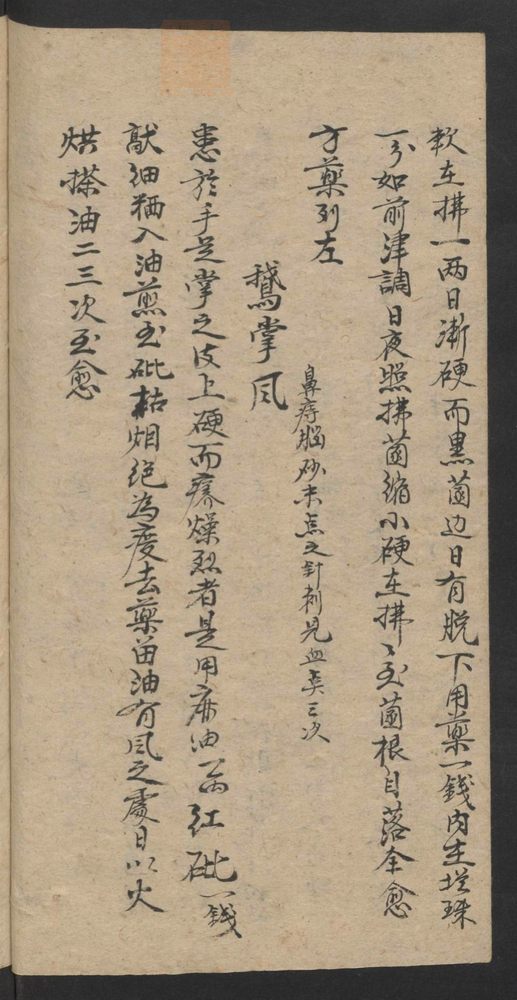 軟在拂一两日漸硬而黒菌边日有脱下用藥一錢内生增珠
一分如前津調日夜照拂菌缩小硬在拂〻至菌根自落全愈
方藥列左
鼻痔脳砂末点之針刺見血奌三次
鵝掌风
患於手足掌之皮上硬而癢燥烈者是用麻油一两红砒一錢
敲细粞入油煎至砒枯烟绝為度去藥畄油有风之處日以火
烘搽油二三次至愈